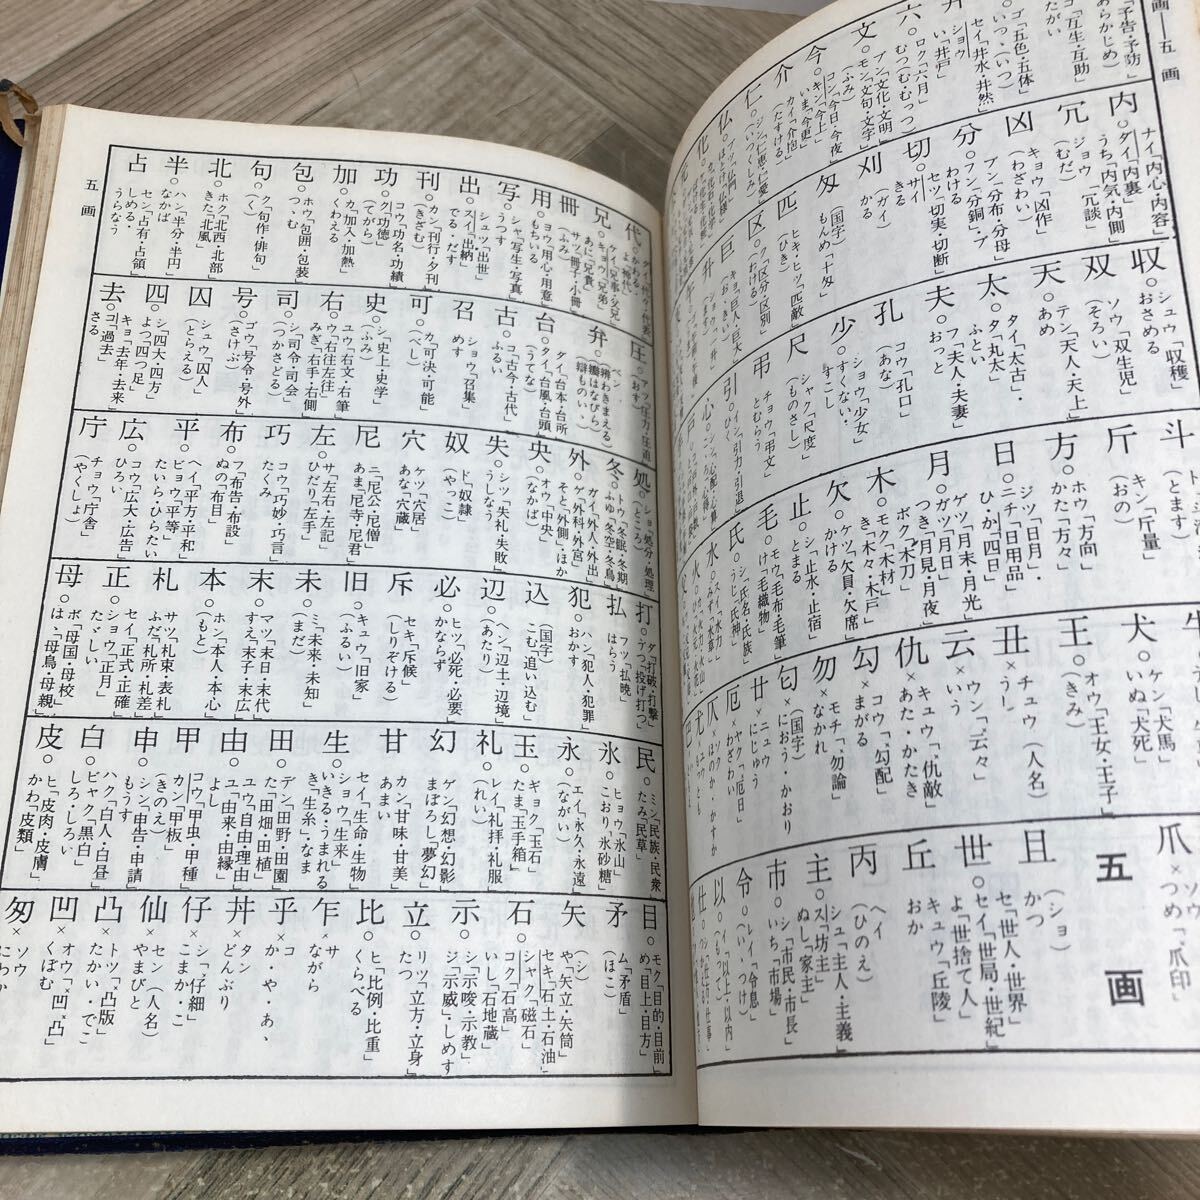 画――五画
「予告・予防」
あらかじめ
ゴ「互生・互助」
たがい
ゴ「五色・五体」
いつ・(いつ)
セイ「井水・井然」
ショウ
い「井戸」
六○ロク「六月」
むつ(む・むっつ)
文○ブン「文化・文明」
モン「文句・文字」
(ふみ)
今○キン「今上」
コン「今日・今夜」
いま「今更」
介○カイ「介抱」
(たすける)
仁○ジン「仁恵・仁愛」
(いつくしみ)
仏○ブツ「仏門」
ほとけ「仏様」
内○ナイ「内心・内容」
ダイ「内裏」
うち「内気・内側」
冗○ジョウ「冗談」
(むだ)
凶○キョウ「凶作」
(わざわい)
分○ブン「分布・分母」
フン「分銅」、ブ
わける
切○セツ「切実・切断」
サイ
きる
刈○(ガイ)
かる
匁○(国字)
もんめ「十匁」
匹○ヒキ・ヒツ「匹敵」
(ひき)
区○ク「区分・区別」
(わける)
巨○キョ「巨人・巨大」
(おおきい)
升○ショウ「一升」
ます
収○シュウ「収穫」
おさめる
双○ソウ「双生児」
(そろい)
天○テン「天人・天上」
あめ
太○タイ「太古」・
タ「丸太」
ふとい
夫○フ「夫人・夫妻」
おっと
孔○コウ「孔口」
(あな)
少○ショウ「少女」
すくない・
すこし
尺○シャク「尺度」
(ものさし)
弔○チョウ「弔文」
とむらう
引○イン「引力・引退」
ひく
斗○ト
(とます)
斤○キン「斤量」
(おの)
方○ホウ「方向」
かた「方々」
日○ニチ「日用品」
ジツ「日月」・
ひ・か「四日」
月○ゲツ「月末・月光」
ガツ「月日」
つき「月見・月夜」
木○ボク「木刀」
モク「木材」
き「木々・木戸」
欠○ケツ「欠員・欠席」
かける
止○シ「止水・止宿」
とまる
毛○モウ「毛布・毛筆」
け「毛織物」
氏○シ「氏名・氏族」
うじ「氏神」
水○スイ「水力」
みず「水車」
犬○ケン「犬馬」
いぬ「犬死」
王○オウ「王女・王子」
(きみ)
丑×チュウ(人名)
うし
云×ウン「云々」
いう
仇×キュウ「仇敵」
あた・かたき
勾×コウ「勾配」
まがる
勿×モチ「勿論」
なかれ
匂×(国字)
におう・かおり
廿×ニュウ
にじゅう
厄×ヤク「厄日」
わざわい
仄×ソク
ほのか・かすか
爪×ソウ
つめ「爪印」
五画
且○(ショ)
かつ
世○セ「世人・世界」
セイ「世局・世紀」
よ「世捨て人」
丘○キュウ「丘陵」
おか
丙○ヘイ
(ひのえ)
主○シュ「主人・主義」
ス「坊主」
ぬし「家主」
市○シ「市民・市長」
いち「市場」
令○レイ「令息」
(いいつけ)
以○イ「以上・以内」
(もって)
五画
代○ダイ「代々・代表」
かわる・
よ「神代」
兄○ケイ「兄事・父兄」
キョウ「兄弟」
あに「兄貴」
冊○サツ「冊子・小冊」
(ふみ)
用○ヨウ「用心・用意」
もちいる
写○シャ「写生・写真」
うつす
出○シュツ「出世」
スイ「出納」
でる・だす
刊○カン「刊行・夕刊」
(きざむ)
功○コウ「功名・功績」
ク「功徳」
(てがら)
加○カ「加入・加熱」
くわえる
包○ホウ「包囲・包装」
つつむ
句○ク「句作・俳句」
(く)
北○ホク「北西・北部」
きた「北風」
半○ハン「半分・半円」
なかば
占○セン「占有・占領」
しめる・
うらなう
圧○アツ「圧力・圧迫」
(おす)
弁○ベン
辨わきまえる
瓣はなびら
辯ものいい
台○ダイ「台本・台所」
タイ「台風・台頭」
(うてな)
古○コ「古今・古代」
召○ショウ「召集」
めす
可○カ「可決・可能」
(べし)
史○シ「史上・史学」
(ふみ)
右○ユウ「右文・右筆」
ウ「右往左往」
みぎ「右手・右側」
司○シ「司令・司会」
(つかさどる)
号○ゴウ「号令・号外」
(さけぶ)
囚○シュウ「囚人」
(とらえる)
四○シ「四大・四方」
よつ「四つ足」
去○キョ「去年・去来」
コ「過去」
さる
処○ショ「処分・処理」
(ところ)
冬○トウ「冬眠・冬期」
ふゆ「冬空・冬鳥」
外○ガイ「外人・外出」
ゲ「外科・外宮」
そと「外側」・ほか
央○オウ「中央」
(なかば)
失○シツ「失礼・失敗」
うしなう
奴○ド「奴隷」
(やっこ)
穴○ケツ「穴居」
あな「穴蔵」
尼○ニ「尼公・尼僧」
あま「尼寺・尼君」
左○サ「左右・左記」
ひだり「左手」
巧○コウ「巧妙・巧言」
たくみ
布○フ「布告・布設」
ぬの「布目」
平○ヘイ「平方・平和」
ビョウ「平等」
たいら・ひらたい
広○コウ「広大・広告」
ひろい
庁○チョウ「庁舎」
(やくしょ)
打○ダ「打破・打撃」
うつ「投げ打つ」
払○フツ「払暁」
はらう
犯○ハン「犯人・犯罪」
おかす
込○(国字)
こむ「追い込む」
辺○ヘン「辺土・辺境」
(あたり)
必○ヒツ「必死・必要」
かならず
斥○セキ「斥候」
(しりぞける)
旧○キュウ「旧家」
(ふるい)
未○ミ「未来・未知」
(まだ)
末○マツ「末日・末代」
すえ「末子・末広」
本○ホン「本人・本心」
(もと)
札○サツ「札束・表札」
ふだ「札所・札差」
正○セイ「正式・正確」
ショウ「正月」
ただしい
母○ボ「母国・母校」
は、「母鳥・母親」
民○ミン「民族・民衆」
たみ「民草」
氷○ヒョウ「氷山」
こおり「氷砂糖」
永○エイ「永久・永遠」
(ながい)
玉○ギョク「玉石」
たま「玉手箱」
礼○レイ「礼拝・礼服」
(れい)
幻○ゲン「幻想・幻影」
まぼろし「夢幻」
甘○カン「甘味・甘美」
あまい
生○セイ「生命・生物」
ショウ「生来」
いきる・うまれる
き「生糸」、なま
田○デン「田野・田園」
た「田畑・田植」
由○ユウ「自由・理由」
ユ「由来・由縁」
よし
甲○コウ「甲虫・甲種」
カン「甲板」
(きのえ)
申○シン「申告・申請」
もうす
白○ハク「白人・白昼」
ビャク「黒白」
しろ・しろい
皮○ヒ「皮肉・皮膚」
かわ「皮類」
目○モク「目的・目前」
め「目上・目方」
矛○ム「矛盾」
(ほこ)
矢○(シ)
や「矢立・矢筒」
石○セキ「石土・石油」
シャク「磁石」
コク「石高」
いし「石地蔵」
示○シ「示唆・示教」、
ジ「示威」・しめす
立○リツ「立方・立身」
たつ
比○ヒ「比例・比重」
くらべる
乍×サ
ながら
乎×コ
か・や・あ、
丼×タン
どんぶり
仔×シ「仔細」
こまか・こ
仙×セン(人名)
やまびと
凸×トツ「凸版」
たかい・でこ
凹×オウ「凹凸」
くぼむ
匆×ソウ
にわか